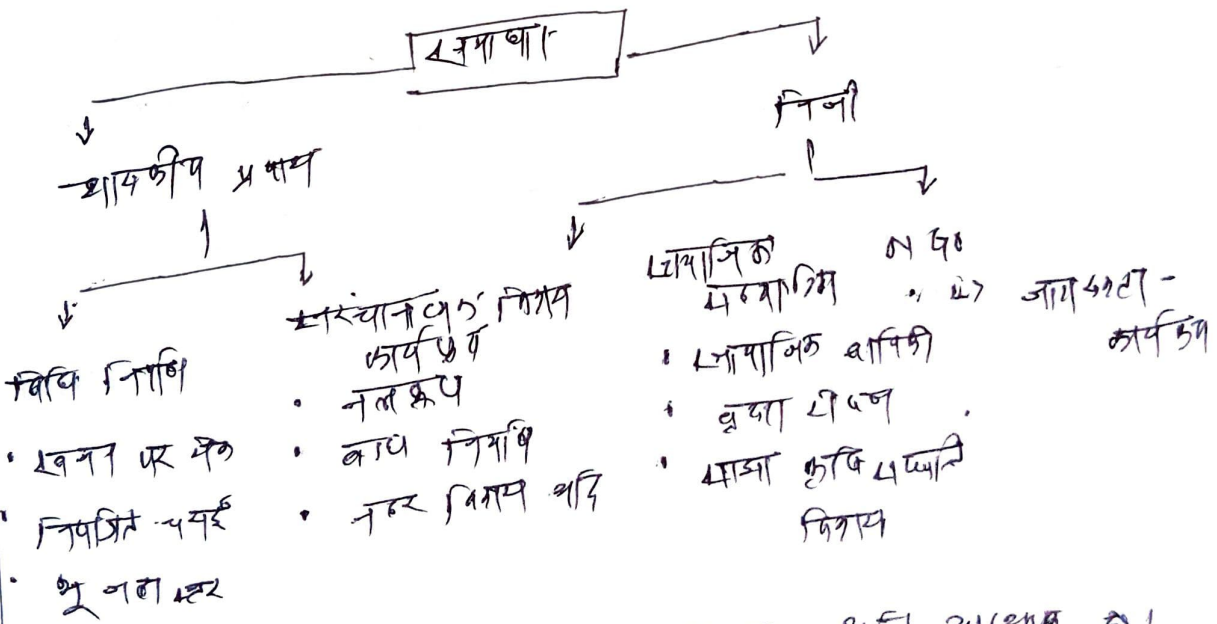 समाधान
शासकीय प्रयास
निजी
विधि निर्माण
• खनन पर रोक
• नियंत्रित चराई
• भू जल स्तर
संरचनात्मक विकास
कार्यक्रम
• नलकूप
• बांध निर्माण
• नहर विकास आदि
सामाजिक
• सामाजिक वानिकी
• वृक्षा रोपण
• साझा कृषि पद्धति
विकास
NGO
जागरूकता -
कार्यक्रम